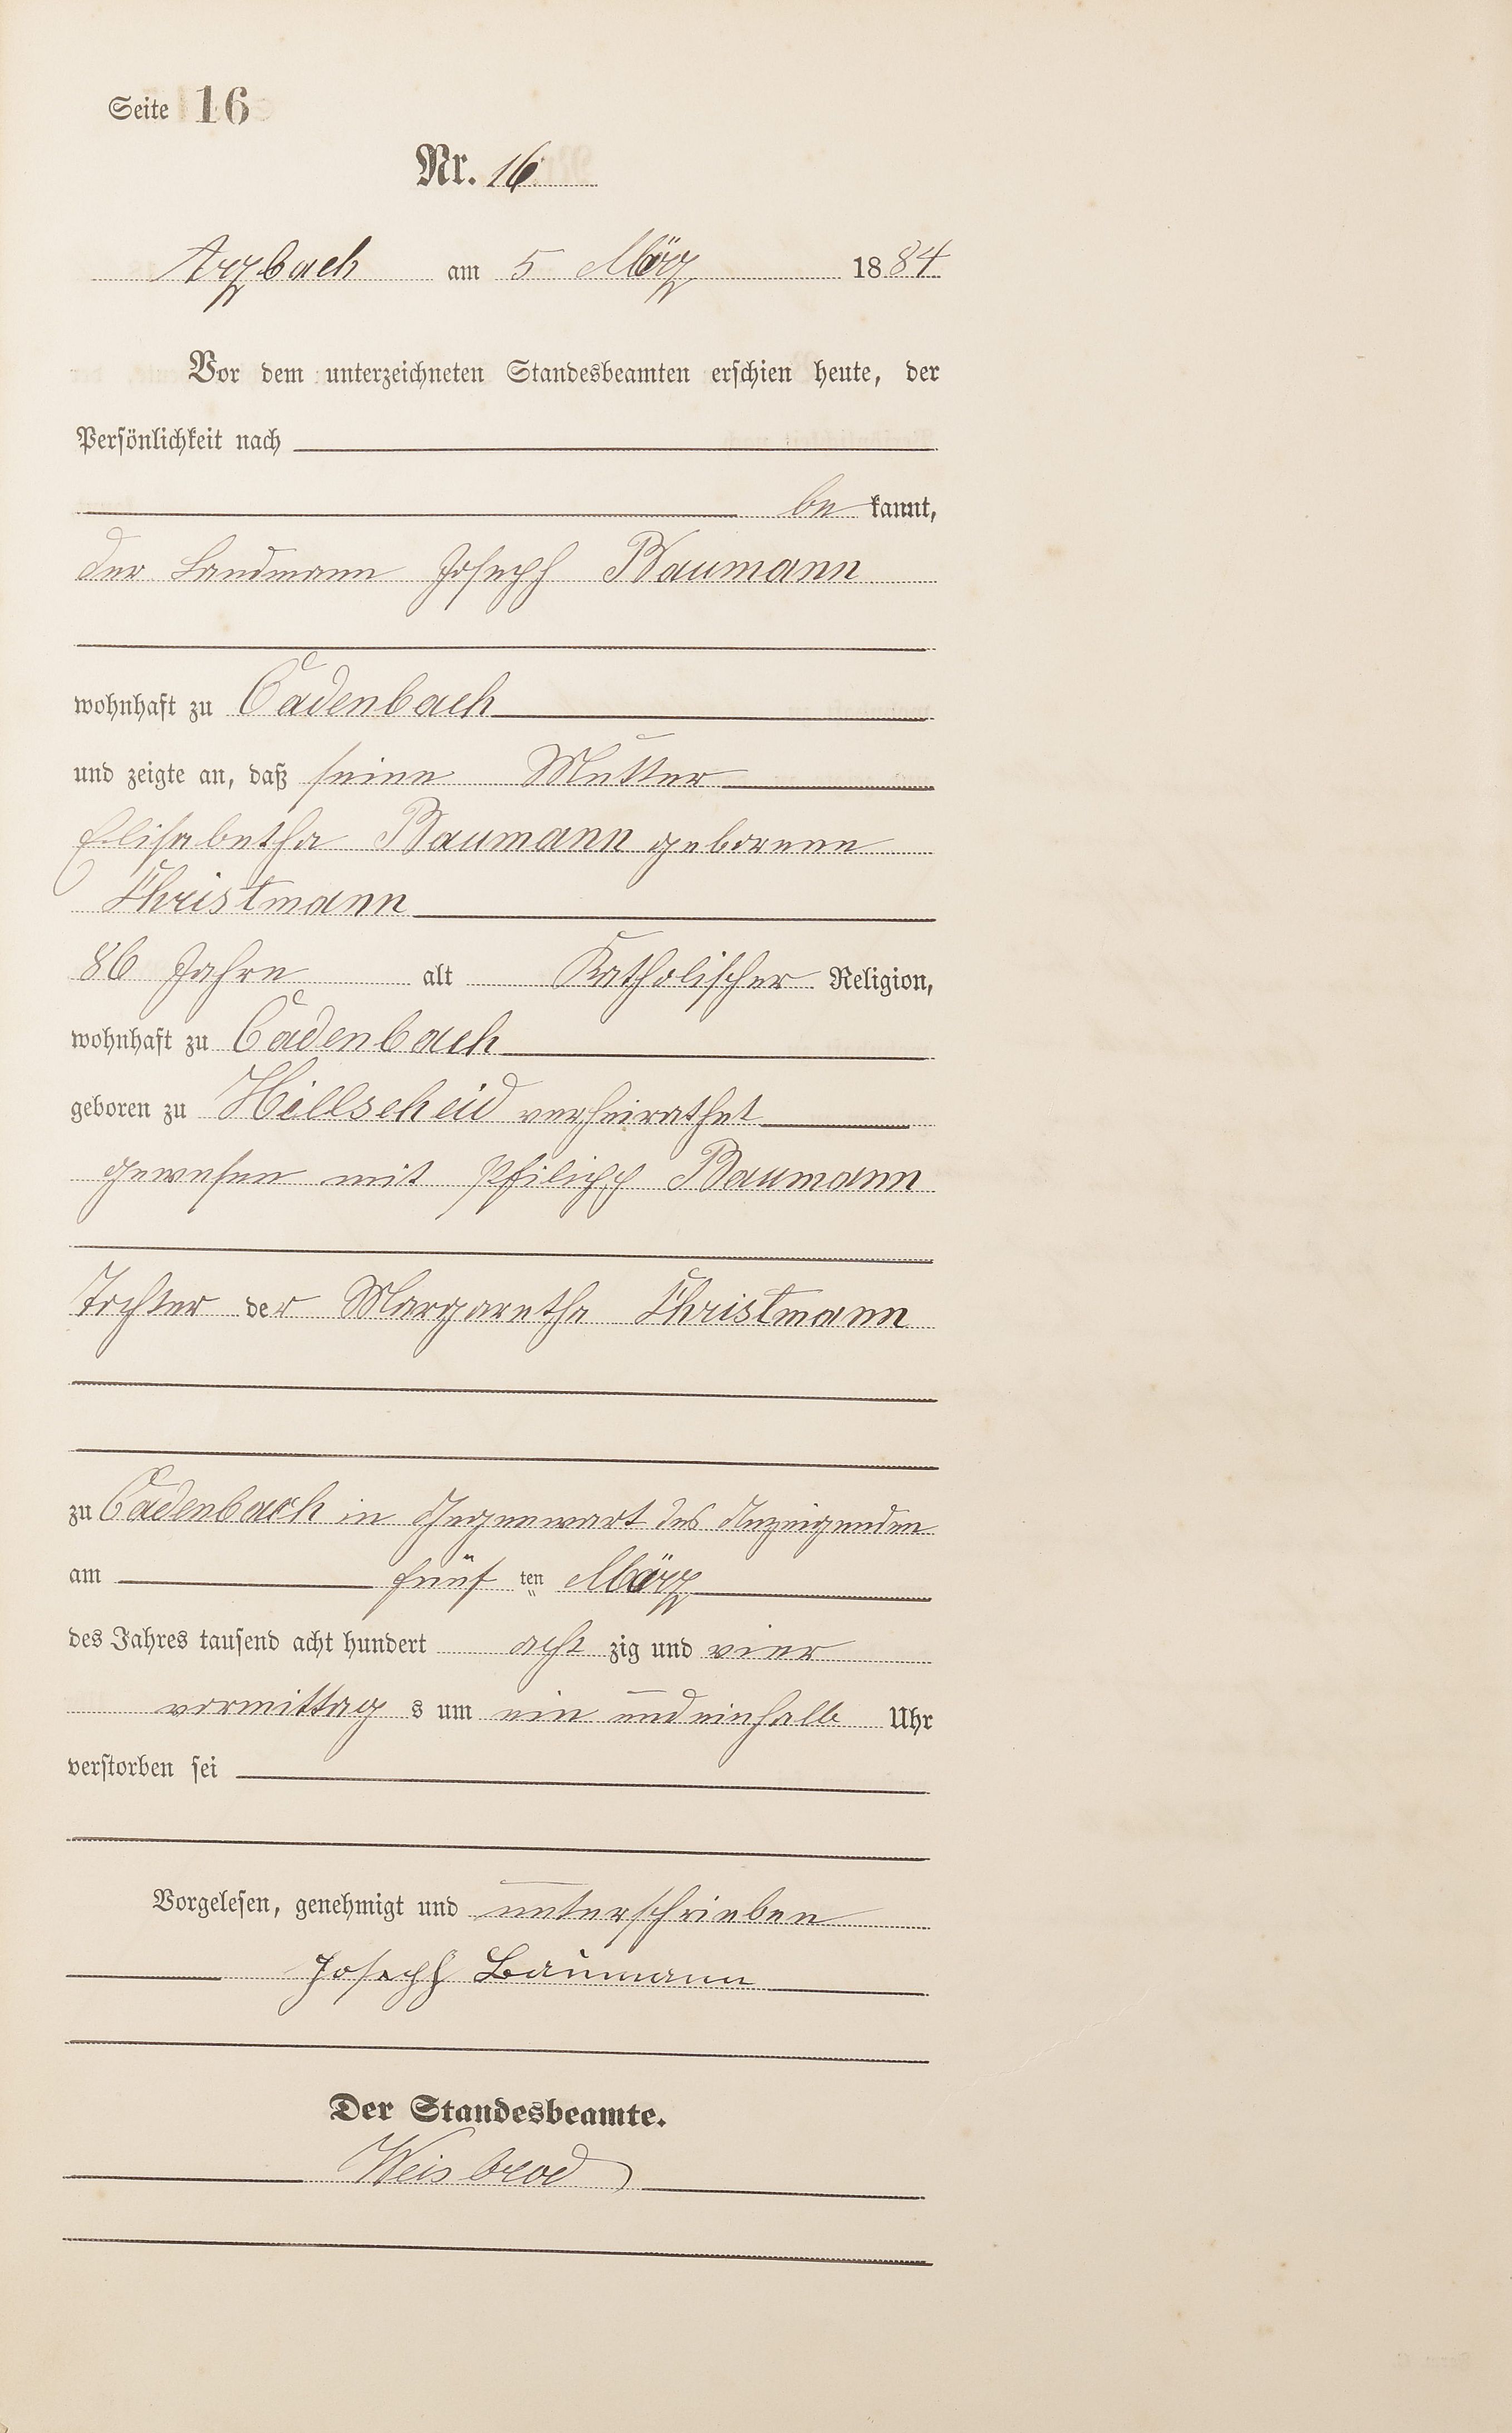 Seite 16
Nr. 16
Arzbach am 5 März 1884
Vor dem unterzeichneten Standesbeamten erschien heute, der
Persönlichkeit nach
be kannt,
der Landmann Joseph Baumann
wohnhaft zu Cadenbach
und zeigte an, daß seine Mutter
Elisabetha Baumann geborene
Christmann
86 Jahre alt Katholischer Religion,
wohnhaft zu Cadenbach
geboren zu Hillscheid verheirathet
gewesen mit Philipp Baumann
Tochter der Margaretha Christmann
zu Cadenbach in Gegenwart des Anzeigenden
am fünf ten März
des Jahres tausend acht hundert acht zig und vier
vormittag s um ein undeinhalb Uhr
verstorben sei
Vorgelesen, genehmigt und unterschrieben
Joseph Baumann
Der Standesbeamte.
Weisbrod